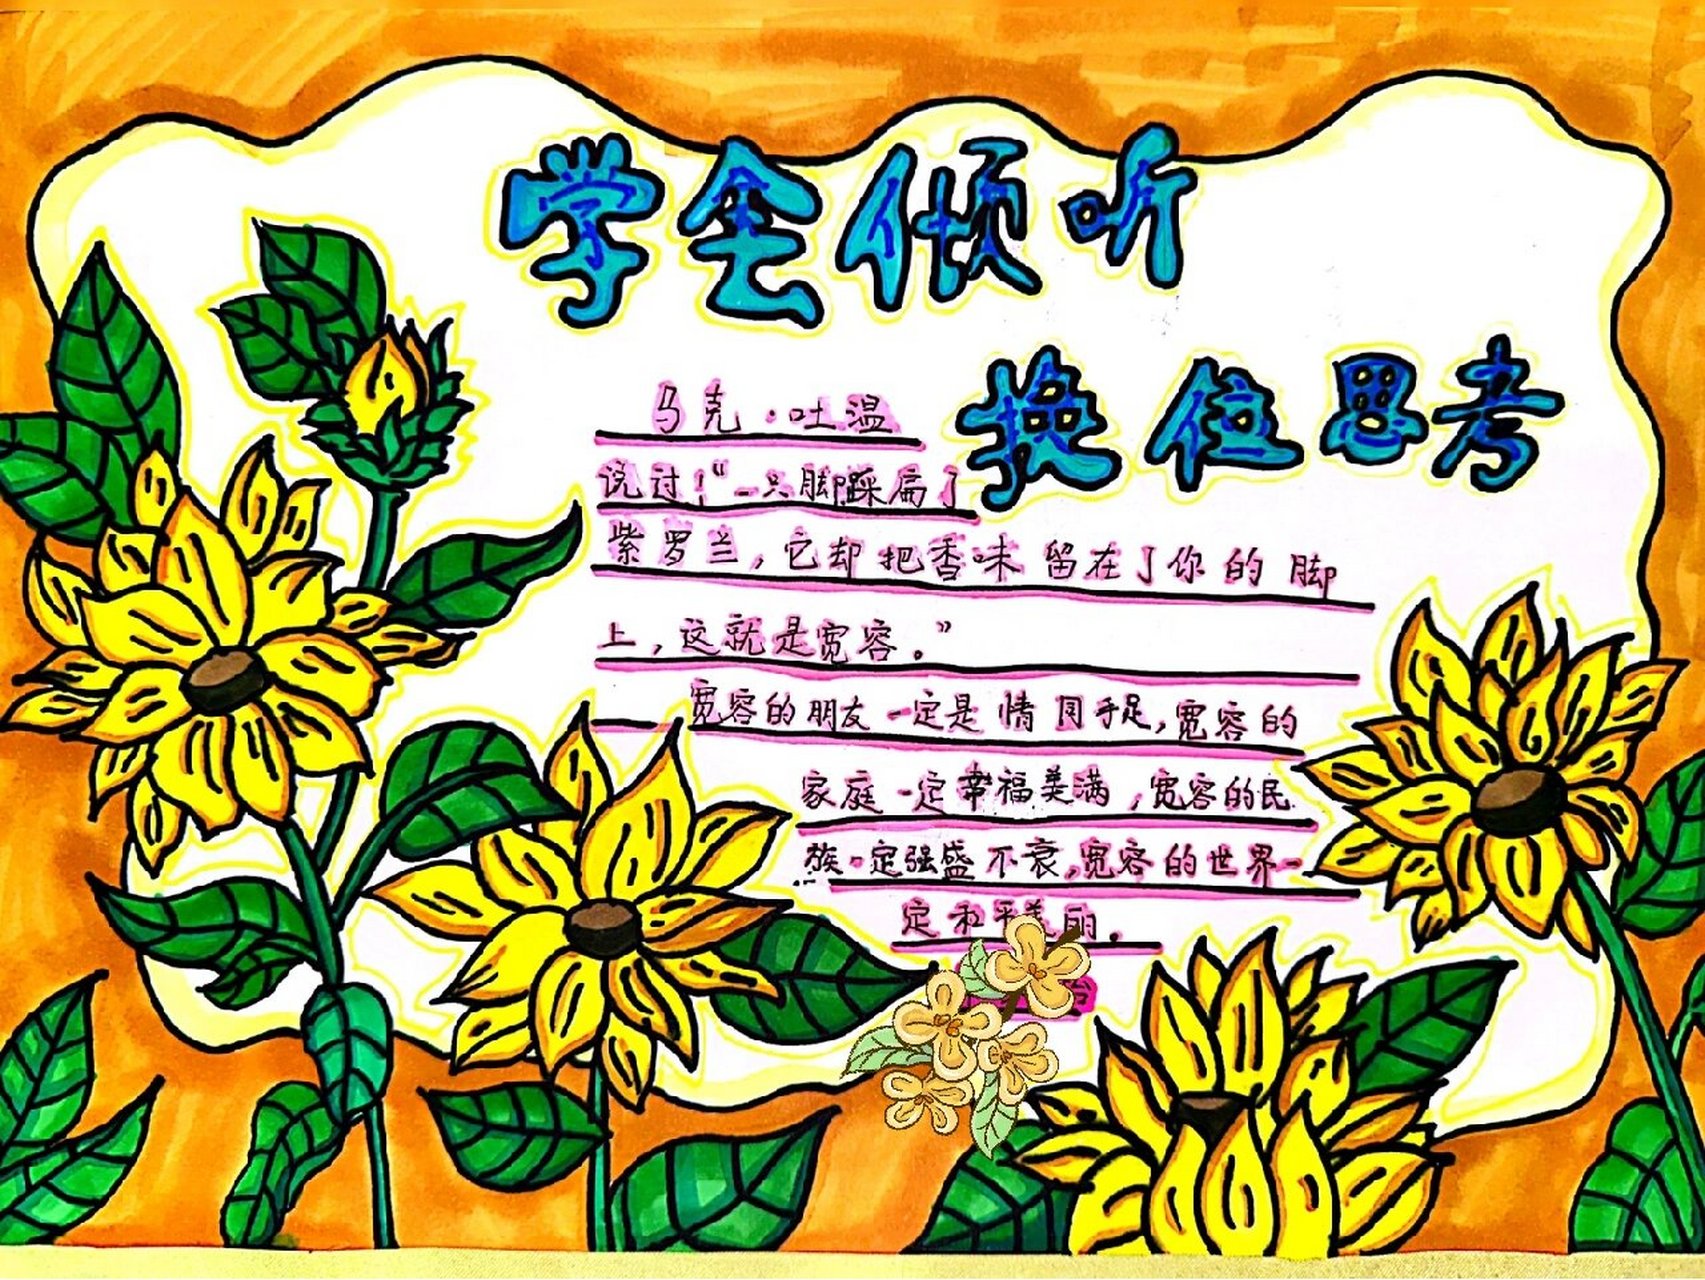 学会倾听
换位思考
马克·吐温
说过！“一只脚踩扁了
紫罗兰，它却把香味留在了你的脚
上，这就是宽容。”
宽容的朋友一定是情同手足，宽容的
家庭一定幸福美满，宽容的民
族一定强盛不衰，宽容的世界一
定和平美丽。